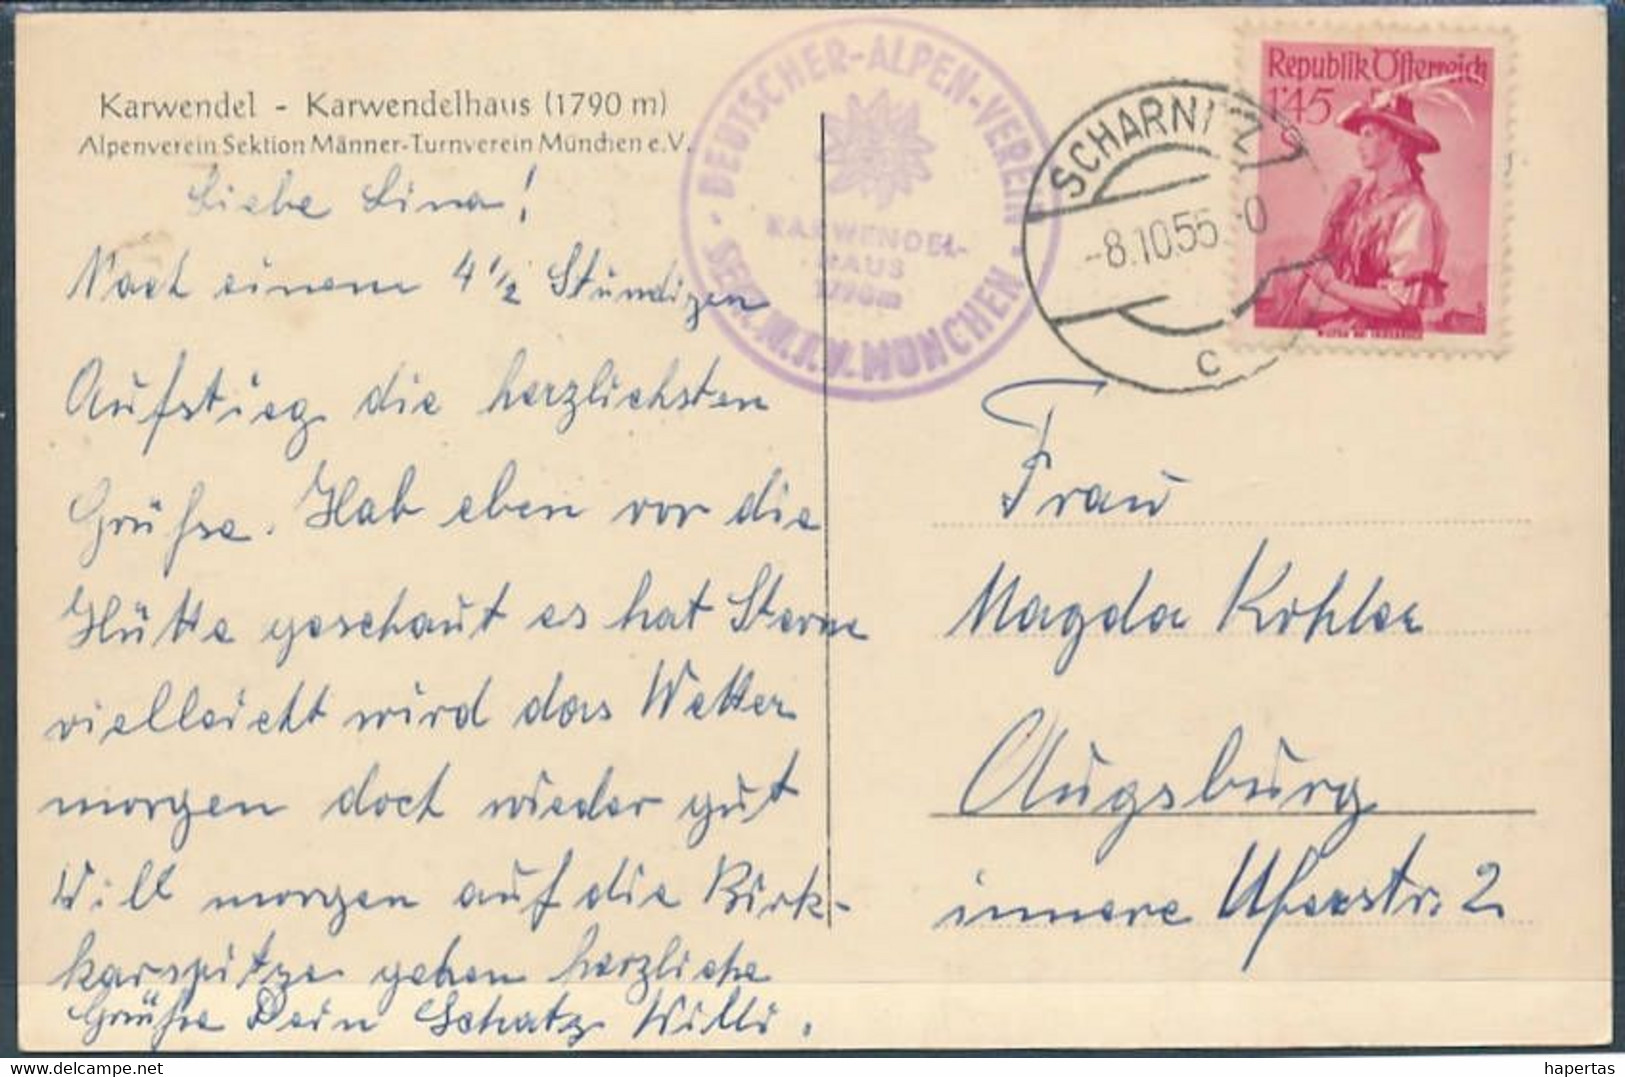 Karwendel - Karwendelhaus (1790 m)
Alpenverein Sektion Männer-Turnverein München e.V.
Liebe Lina!
Nach einem 4 1/2 Stündigen
Aufstieg die herzlichsten
Grühse. Hab eben vor die
Hütte geschaut es hat Sterne
vielleicht wird das Wetter
morgen doch wieder gut
Will morgen auf die Birk-
karspitze gehen herzliche
Grühse Dein Schatz Willi.
· DEUTSCHER-ALPEN-VEREIN ·
KARWENDEL-
HAUS
1790m
SEKT. M.T.V. MÜNCHEN
SCHARNITZ
-8.10.55
c
Republik Österreich
1'45 S
Frau
Magda Kohler
Augsburg
innere Uferstr. 2
hapertas